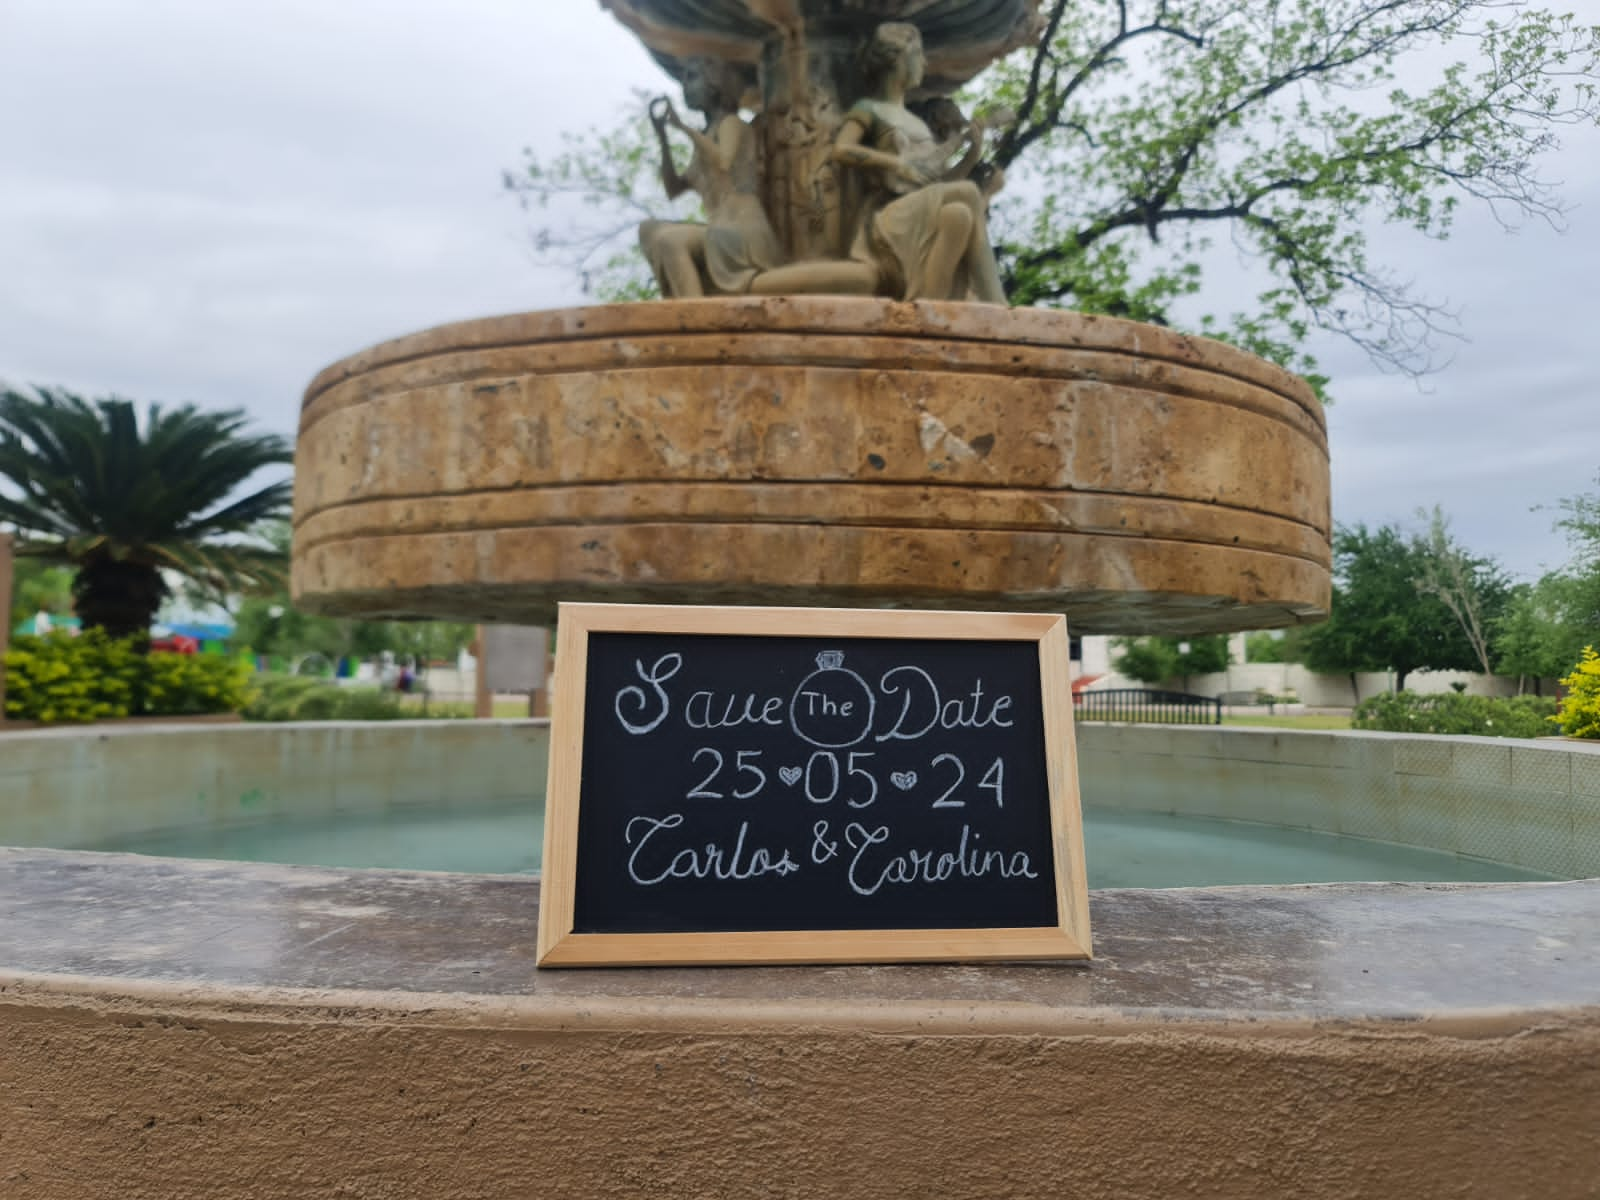 Save The Date
25 ♥ 05 ♥ 24
Carlos & Carolina